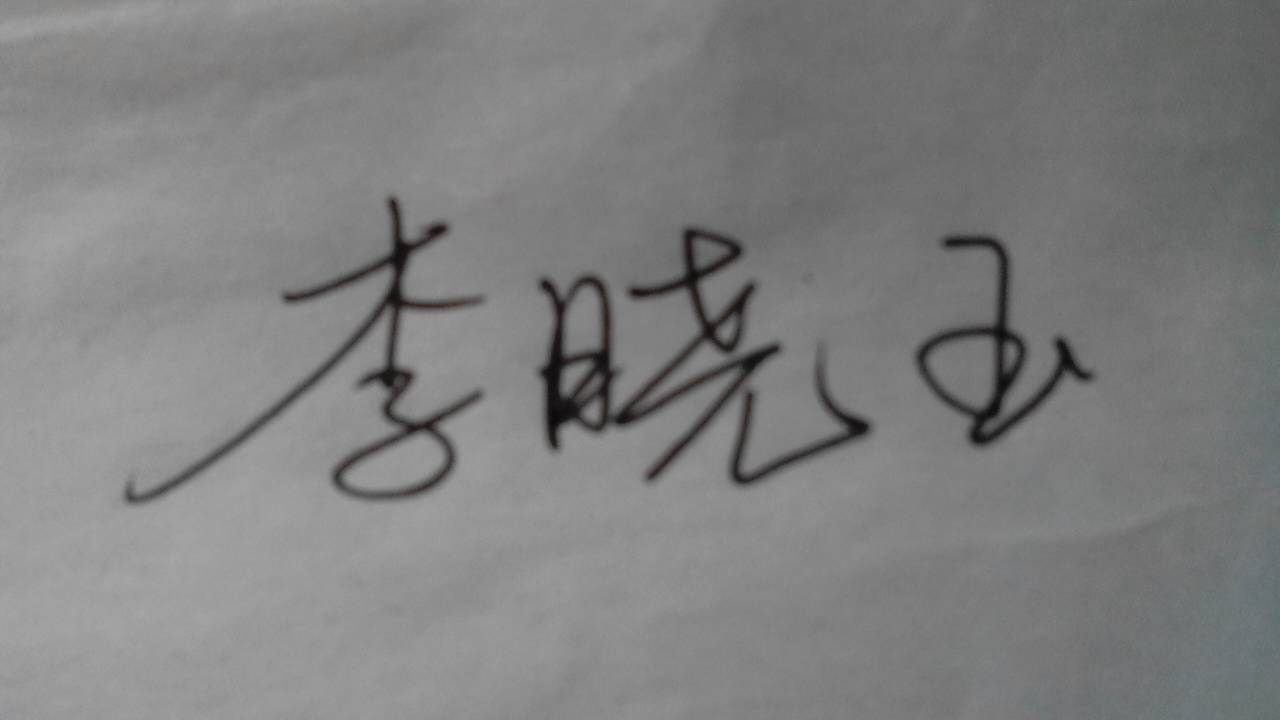 李晓玉